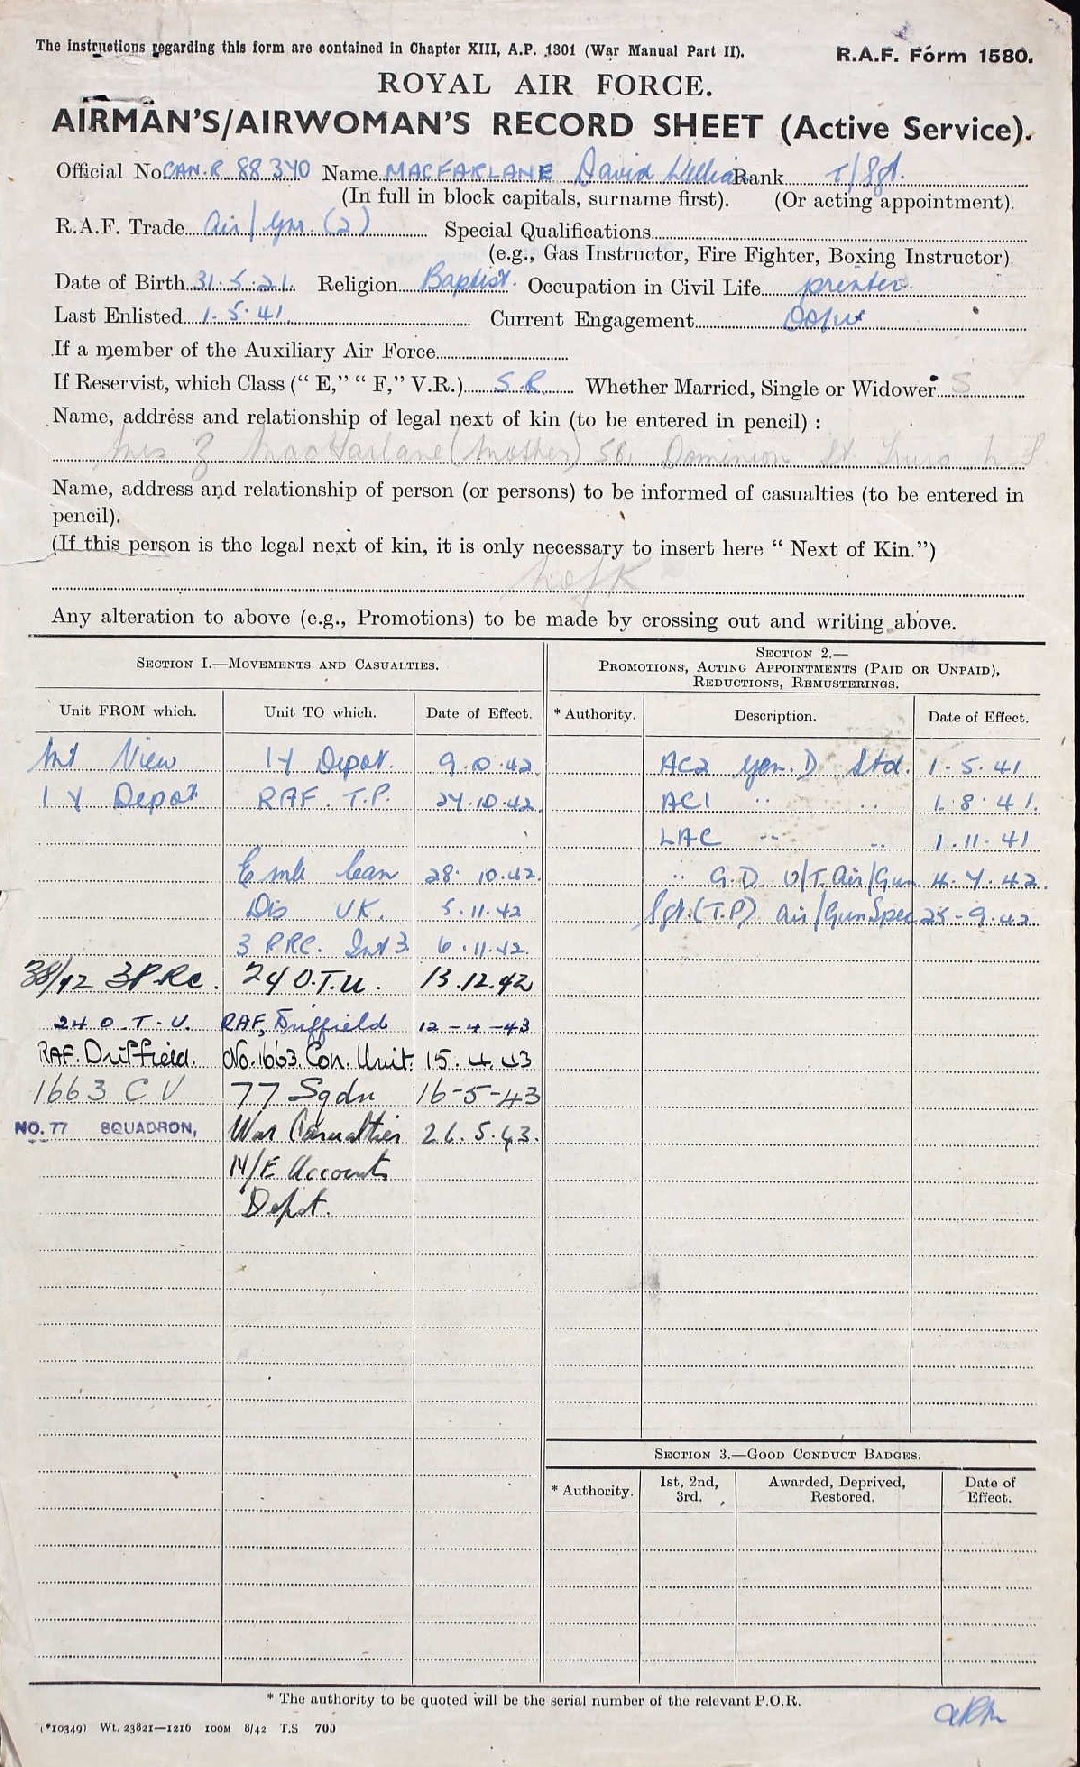 The Instructions regarding this form are contained in Chapter XIII, A.P. 1301 (War Manual Part II).
R.A.F. Form 1580.
ROYAL AIR FORCE.
AIRMAN'S/AIRWOMAN'S RECORD SHEET (Active Service).
Official No CAN.R 88340 Name MACFARLANE David William Rank T/Sgt.
(In full in block capitals, surname first). (Or acting appointment).
R.A.F. Trade Air/Gnr (2) Special Qualifications
(e.g., Gas Instructor, Fire Fighter, Boxing Instructor)
Date of Birth 31.5.21. Religion Baptist. Occupation in Civil Life printer
Last Enlisted 1.5.41. Current Engagement
If a member of the Auxiliary Air Force
If Reservist, which Class ("E," "F," V.R.) S.R. Whether Married, Single or Widower S
Name, address and relationship of legal next of kin (to be entered in pencil) :
Mrs Z MacFarlane (Mother) 56, Dominion St. Truro N S
Name, address and relationship of person (or persons) to be informed of casualties (to be entered in
pencil).
(If this person is the legal next of kin, it is only necessary to insert here "Next of Kin.")
N of K
Any alteration to above (e.g., Promotions) to be made by crossing out and writing above.
SECTION 1.—MOVEMENTS AND CASUALTIES.
Unit FROM which. Unit TO which. Date of Effect.
Mt View 1 Y Depot. 9.10.42
1 Y Depot RAF. T.P. 27.10.42
Emb Can 28.10.42.
Dis UK. 5.11.42
3 PRC. 6.11.42.
38/42 3 P.R.C. 24 O.T.U. 15.12.42
24 O.T.U. RAF, Driffield 12-4-43
RAF. Driffield. No.1663.Con.Unit. 15.4.43
1663 C U 77 Sqdn 16-5-43
NO. 77 SQUADRON, War Casualties 26.5.43.
N/E Accounts
Dept.
SECTION 2.—
PROMOTIONS, ACTING APPOINTMENTS (PAID OR UNPAID),
REDUCTIONS, REMUSTERINGS.
* Authority. Description. Date of Effect.
AC2 Gen. D Std. 1.5.41
AC1 " " 1.8.41.
LAC " " 1.11.41
" G.D U/T Air/Gun 4.7.42.
Sgt.(T.P) Air/Gun Spec 25-9.42
SECTION 3.—GOOD CONDUCT BADGES.
* Authority. 1st, 2nd, 3rd. Awarded, Deprived, Restored. Date of Effect.
* The authority to be quoted will be the serial number of the relevant P.O.R.
(*10349) Wt. 23821—1210 100M 8/42 T.S. 700